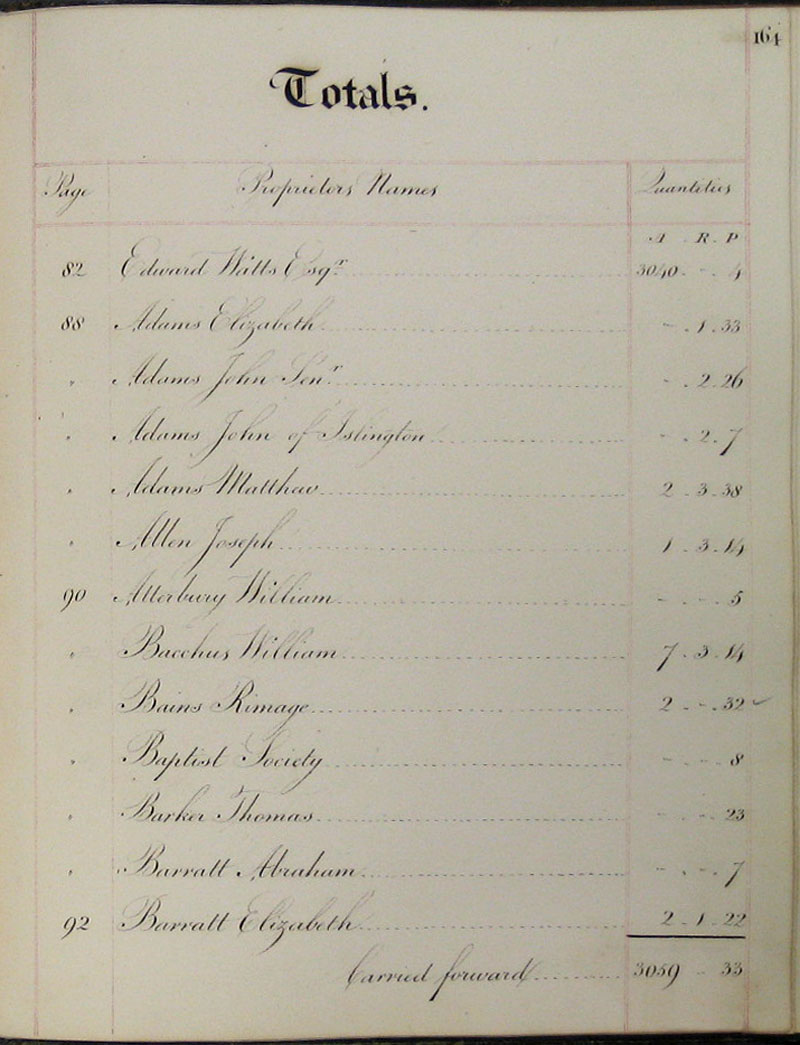 164
Totals.
Page Proprietors Names Quantities
A. R. P
82 Edward Watts Esqr 3040 - - 4
88 Adams Elizabeth - . 1 . 33
" Adams John Senr - . 2 . 26
" Adams John of Islington - . 2 . 7
" Adams Matthew 2 . 3 . 38
" Allen Joseph 1 . 3 . 14
90 Atterbury William - . - . 5
" Bacchus William 7 . 3 . 14
" Bains Rimage 2 . - . 32
" Baptist Society - . - . 8
" Barker Thomas - . - . 23
" Barratt Abraham - . - . 7
92 Barratt Elizabeth 2 . 1 . 22
Carried forward 3059 - 33